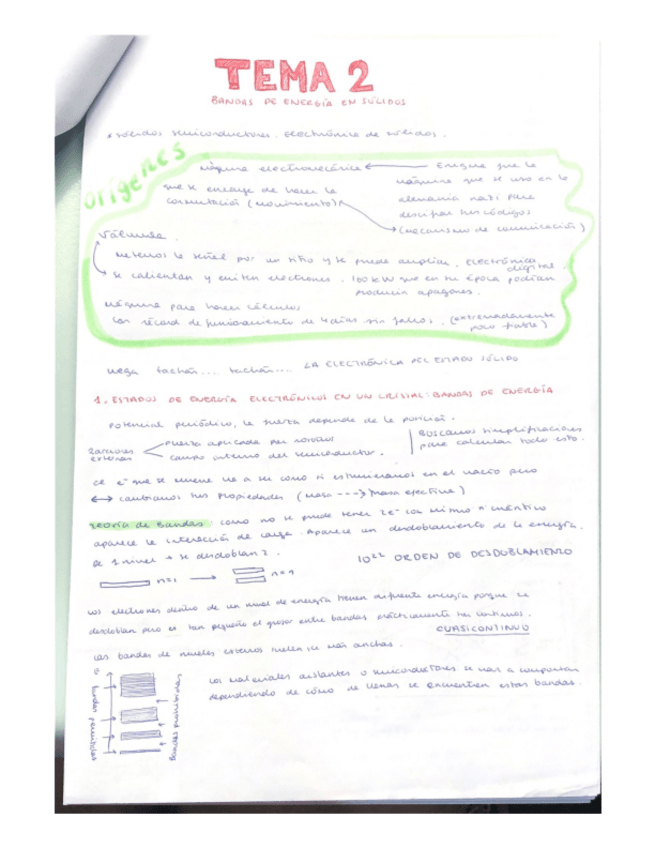 TEMA 2
BANDAS DE ENERGÍA EN SÓLIDOS
sólidos semiconductores. Electrónica de sólidos.
orígenes
máquina electromecánica
que se encarga de hacer la
conmutación (movimiento)
Enigma fue la
máquina que se usó en la
alemania nazi para
descifrar sus códigos
(mecanismo de comunicación)
Válvula
metemos la señal por un tubo y se puede ampliar. Electrónica digital.
se calientan y emiten electrones. 160 kW que en su época podían
producir apagones.
máquina para hacer cálculos
con récord de funcionamiento de 4 días sin fallos. (extremadamente
poco fiable)
llega tachán.... tachán.... LA ELECTRÓNICA DEL ESTADO SÓLIDO
1. ESTADOS DE ENERGÍA ELECTRÓNICOS EN UN CRISTAL: BANDAS DE ENERGÍA
potencial periódico, la fuerza depende de la posición.
2 acciones
externas
fuerza aplicada por nosotros
campo interno del semiconductor.
BUSCAMOS simplificaciones
para calcular todo esto.
el e⁻ que se mueve va a ser como si estuviéramos en el vacío pero
cambiamos sus propiedades (masa ---> masa efectiva)
teoría de Bandas como no se puede tener 2e⁻ con mismo nº cuántico
aparece la interacción de carga. Aparece un desdoblamiento de la energía.
de 1 nivel → se desdoblan 2.
10²² ORDEN DE DESDOBLAMIENTO
n=1
n=1
Los electrones dentro de un nivel de energía tienen diferente energía porque se
desdoblan pero es tan pequeño el grosor entre bandas prácticamente son continuos.
CUASICONTINUO
Las bandas de niveles externos suelen ser más anchas.
E
bandas permitidas
Bandas prohibidas
Los materiales aislantes o semiconductores se van a comportar
dependiendo de cómo de llenas se encuentren estas bandas.